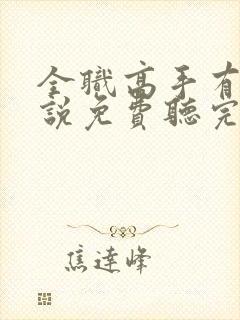 全職高手有
說免費聽完
焦達峰